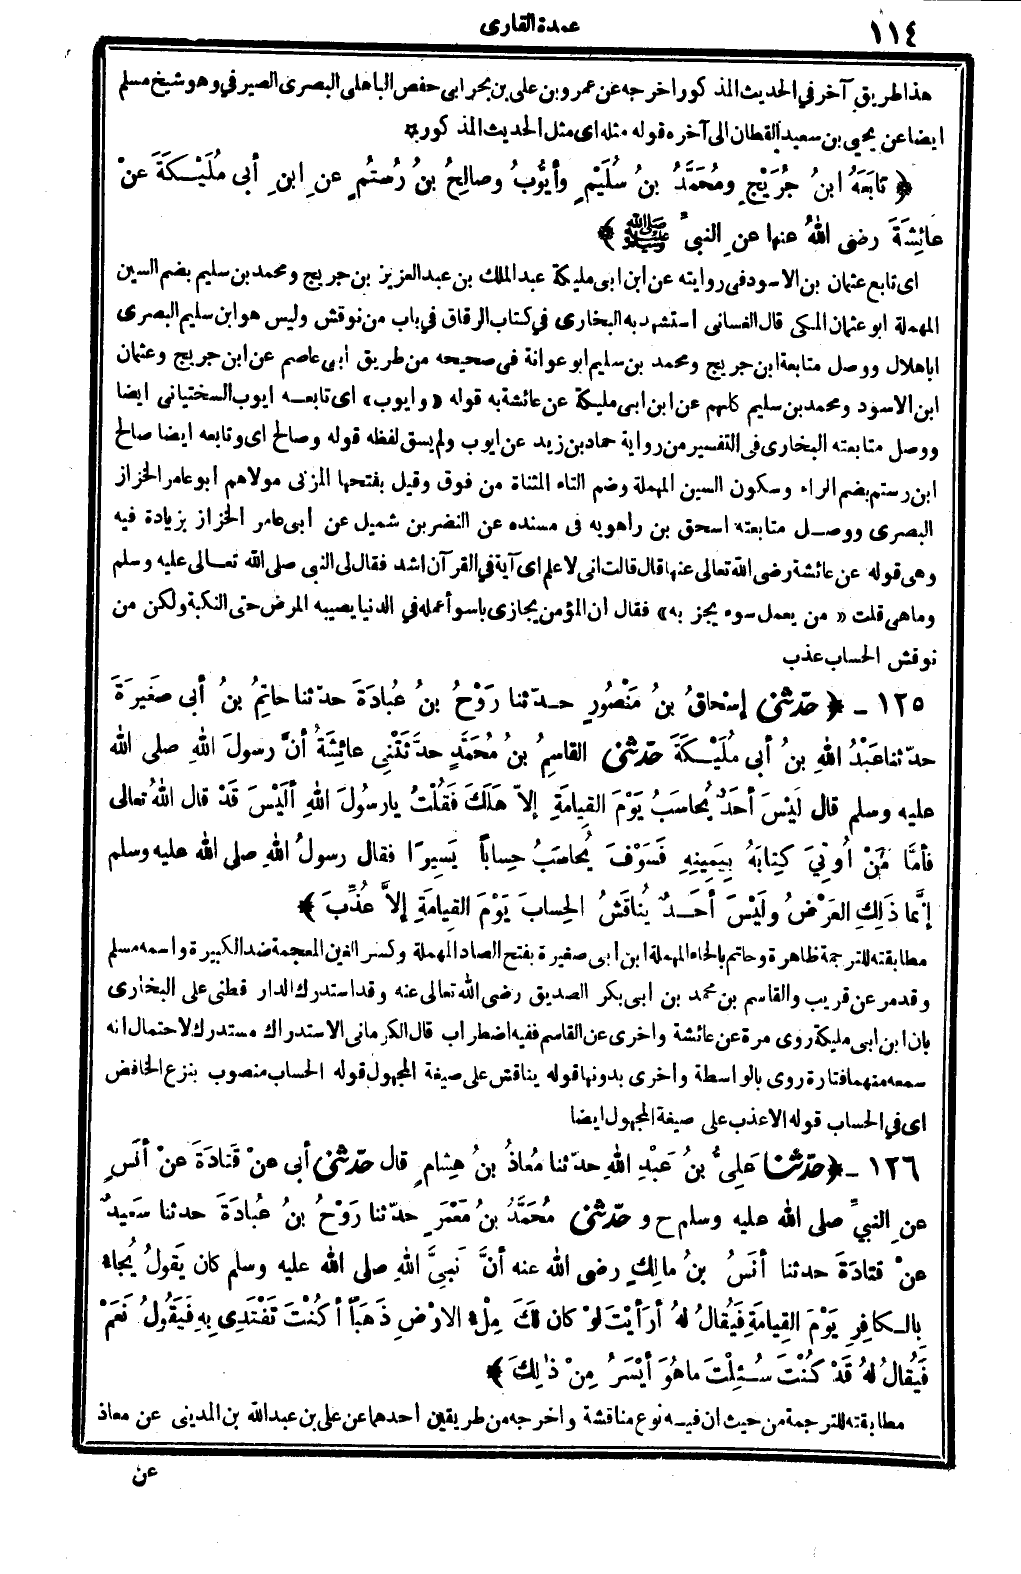 ١١٤
عمدة القارى
هذا طريق آخر في الحديث المذكور اخرجه عن عمرو بن على بن بحر ابى حفص الباهلى البصرى الصيرفي وهو شيخ مسلم
ايضا عن يحيى بن سعيد القطان الى آخره قوله مثله اى مثل الحديث المذكور *
﴿ تابَعَهُ ابنُ جُرَيْجٍ ومُحَمَّدُ بنُ سُلَيْمٍ وأيُّوبُ وصالِحُ بنُ رُسْتُمٍ عنِ ابنِ أبى مُلَيْكَةَ عنْ
عائِشَةَ رضى اللهُ عنها عنِ النبىِّ ﷺ ﴾
اى تابع عثمان بن الاسود فى روايته عن ابن ابى مليكة عبد الملك بن عبد العزيز بن جريج ومحمد بن سليم بضم السين
المهملة ابو عثمان المكى قال الغسانى استشهد به البخارى في كتاب الرقاق في باب من نوقش وليس هو ابن سليم البصرى
ابا هلال ووصل متابعة ابن جريج ومحمد بن سليم ابو عوانة فى صحيحه من طريق أبى عاصم عن ابن جريج وعثمان
ابن الاسود ومحمد بن سليم كلهم عن ابن ابى مليكة عن عائشة به قوله «وايوب» اى تابعه ايوب السختيانى ايضا
ووصل متابعته البخارى فى التفسير من رواية حماد بن زيد عن ايوب ولم يسق لفظه قوله وصالح اى وتابعه ايضا صالح
ابن رستم بضم الراء وسكون السين المهملة وضم التاء المثناة من فوق وقيل بفتحها المزنى مولاهم ابو عامر الخزاز
البصرى ووصل متابعته اسحق بن راهويه فى مسنده عن النضر بن شميل عن ابى عامر الخزاز بزيادة فيه
وهى قوله عن عائشة رضى الله تعالى عنها قال قالت انى لاعلم اى آية في القرآن اشد فقال لى النبى صلى الله تعالى عليه وسلم
وما هى قلت « من يعمل سوء يجز به» فقال ان المؤمن يجازى باسوأ عمله في الدنيا يصيبه المرض حتى النكبة ولكن من
نوقش الحساب عذب
١٢٥ ـ ﴿ حَدّثنى إسْحاقُ بنُ مَنْصُورٍ حدّثنا رَوْحُ بنُ عُبادَةَ حدّثنا حاتِمُ بنُ أبى صَغيرَةَ
حدّثنا عَبْدُ اللهِ بنُ أبى مُلَيْكَةَ حَدّثنى القاسِمُ بنُ مُحَمَّدٍ حدَّثَتْنِى عائِشَةُ أنَّ رسولَ اللهِ صلى الله
عليه وسلم قال لَيْسَ أحَدٌ يُحاسَبُ يَوْمَ القِيامَةِ إلاّ هَلَكَ فَقُلْتُ يارسُولَ اللهِ ألَيْسَ قَدْ قال اللهُ تعالى
فأمَّا مَنْ أُوتِيَ كِتابَهُ بِيَمِينِهِ فَسَوْفَ يُحاسَبُ حِساباً يَسِيرًا فقال رسولُ اللهِ صلى الله عليه وسلم
إنَّما ذَلِكِ العَرْضُ ولَيْسَ أحَدٌ يُناقَشُ الحِسابَ يَوْمَ القِيامَةِ إلاَّ عُذِّبَ ﴾
مطابقته للترجمة ظاهرة وحاتم بالحاء المهملة ابن ابى صغيرة بفتح الصاد المهملة وكسر الغين المعجمة ضد الكبيرة واسمه مسلم
وقد مر عن قريب والقاسم بن محمد بن ابى بكر الصديق رضى الله تعالى عنه وقد استدرك الدار قطنى على البخارى
بان ابن ابى مليكة روى مرة عن عائشة واخرى عن القاسم ففيه اضطراب قال الكرمانى الاستدراك مستدرك لاحتمال انه
سمعه منهما فتارة روى بالواسطة واخرى بدونها قوله يناقش على صيغة المجهول قوله الحساب منصوب بنزع الخافض
اى في الحساب قوله الا عذب على صيغة المجهول ايضا
١٢٦ ـ ﴿ حَدّثنا عَلِىُّ بنُ عَبْدِ اللهِ حدّثنا مُعاذُ بنُ هِشامٍ قال حَدّثنى أبى عنْ قَتادَةَ عنْ أنَسٍ
عنِ النبىِّ صلى الله عليه وسلم ح و حَدّثنى مُحَمَّدُ بنُ مَعْمَرٍ حدّثنا رَوْحُ بنُ عُبادَةَ حدثنا سَعِيدٌ
عنْ قتادَةَ حدثنا أنَسُ بنُ مالِكٍ رضى الله عنه أنَّ نَبىَّ اللهِ صلى الله عليه وسلم كان يَقولُ يُجاء
بالكافِرِ يَوْمَ القِيامَةِ فَيُقالُ لهُ أرَأيْتَ لوْ كان لَكَ مِلْء الارْضِ ذَهَباً أكُنْتَ تَفْتَدِى بِهِ فَيَقُولُ نَعَمْ
فَيُقالُ لهُ قَدْ كُنْتَ سُئِلْتَ ما هُوَ أيْسَرُ مِنْ ذٰلِكَ ﴾
مطابقته للترجمة من حيث ان فيه نوع مناقشة واخرجه من طريقين احدهما عن على بن عبدالله بن المدينى عن معاذ
عن